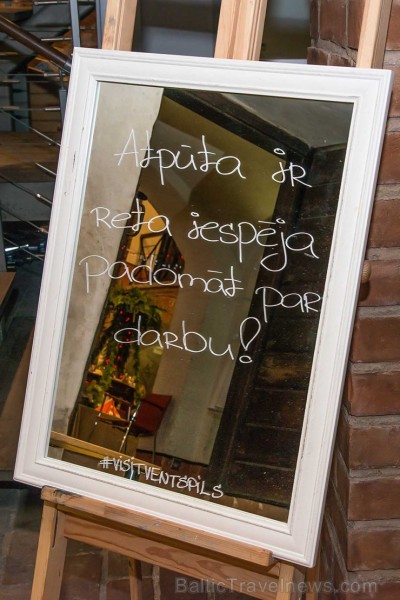 Atpūta ir
reta iespēja
padomāt par
darbu!
#VISITVENTSPILS
BalticTravelNews.com